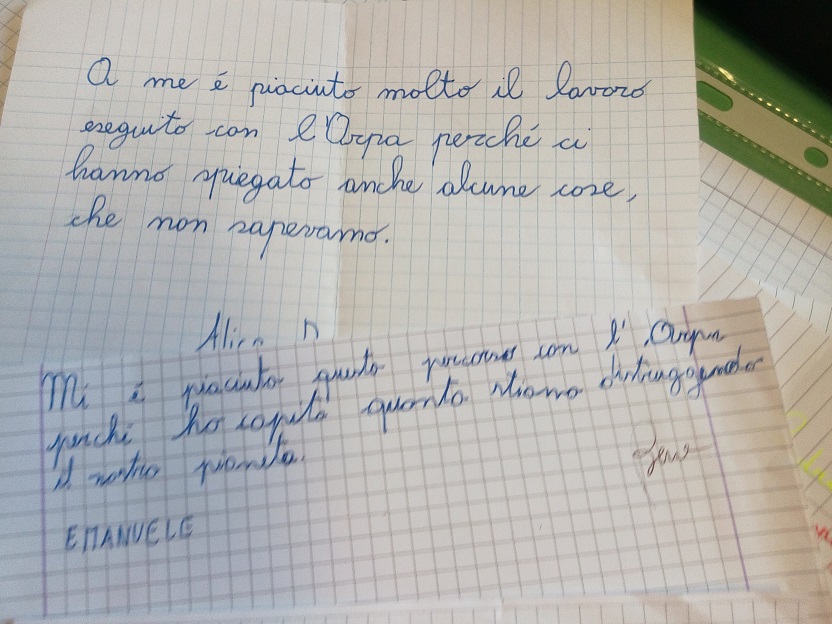 A me é piaciuto molto il lavoro
eseguito con l'Arpa perché ci
hanno spiegato anche alcune cose,
che non sapevamo.
Mi é piaciuto questo percorso con l' Arpa
perchi ho capito quanto stiamo
il nostro pianeta.
EMANUELE